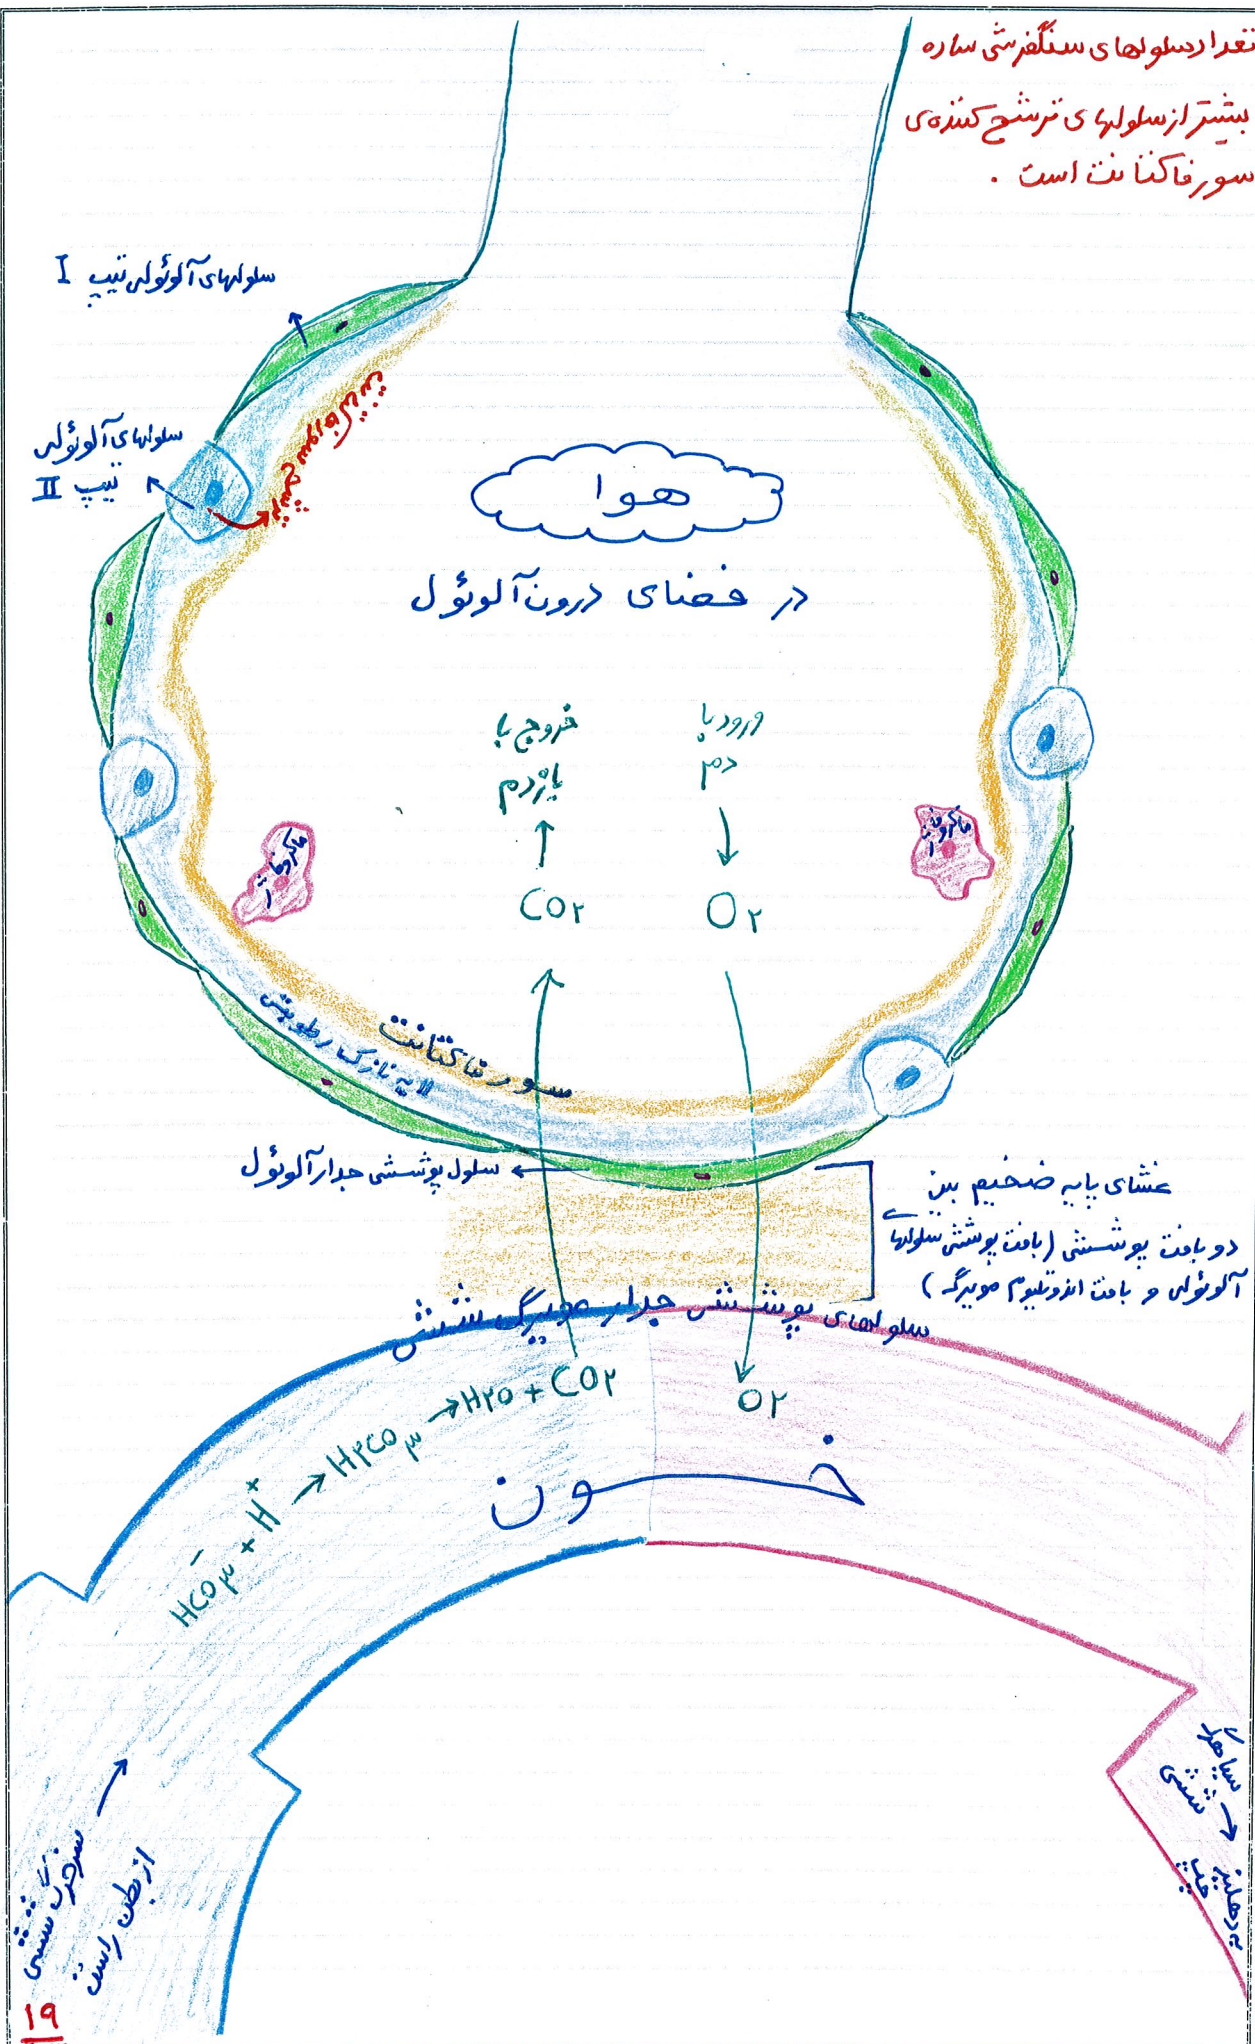 تعداد سلولهای سنگفرشی ساده
بیشتر از سلولهای ترشح کننده‌ی
سورفاکتانت است .
سلولهای آلوئولی تیپ I
سلولهای آلوئولی
تیپ II
ترشح سورفاکتانت
هوا
در فضای درون آلوئول
ورود با
دم
خروج با
بازدم
ماکروفاژ
ماکروفاژ
O۲
CO۲
سورفاکتانت
لایه نازک رطوبتی
سلول پوششی جدار آلوئول
غشای پایه ضخیم بین
دو بافت پوششی (بافت پوششی سلولهای
آلوئولی و بافت اندوتلیوم مویرگ)
سلولهای پوششی جدار مویرگ ششی
O۲
HCO۳⁻ + H⁺ → H۲CO۳ → H۲O + CO۲
خون
سیاهرگ
ششی
به دهلیز
چپ
سرخرگ ششی
از بطن راست
۱۹